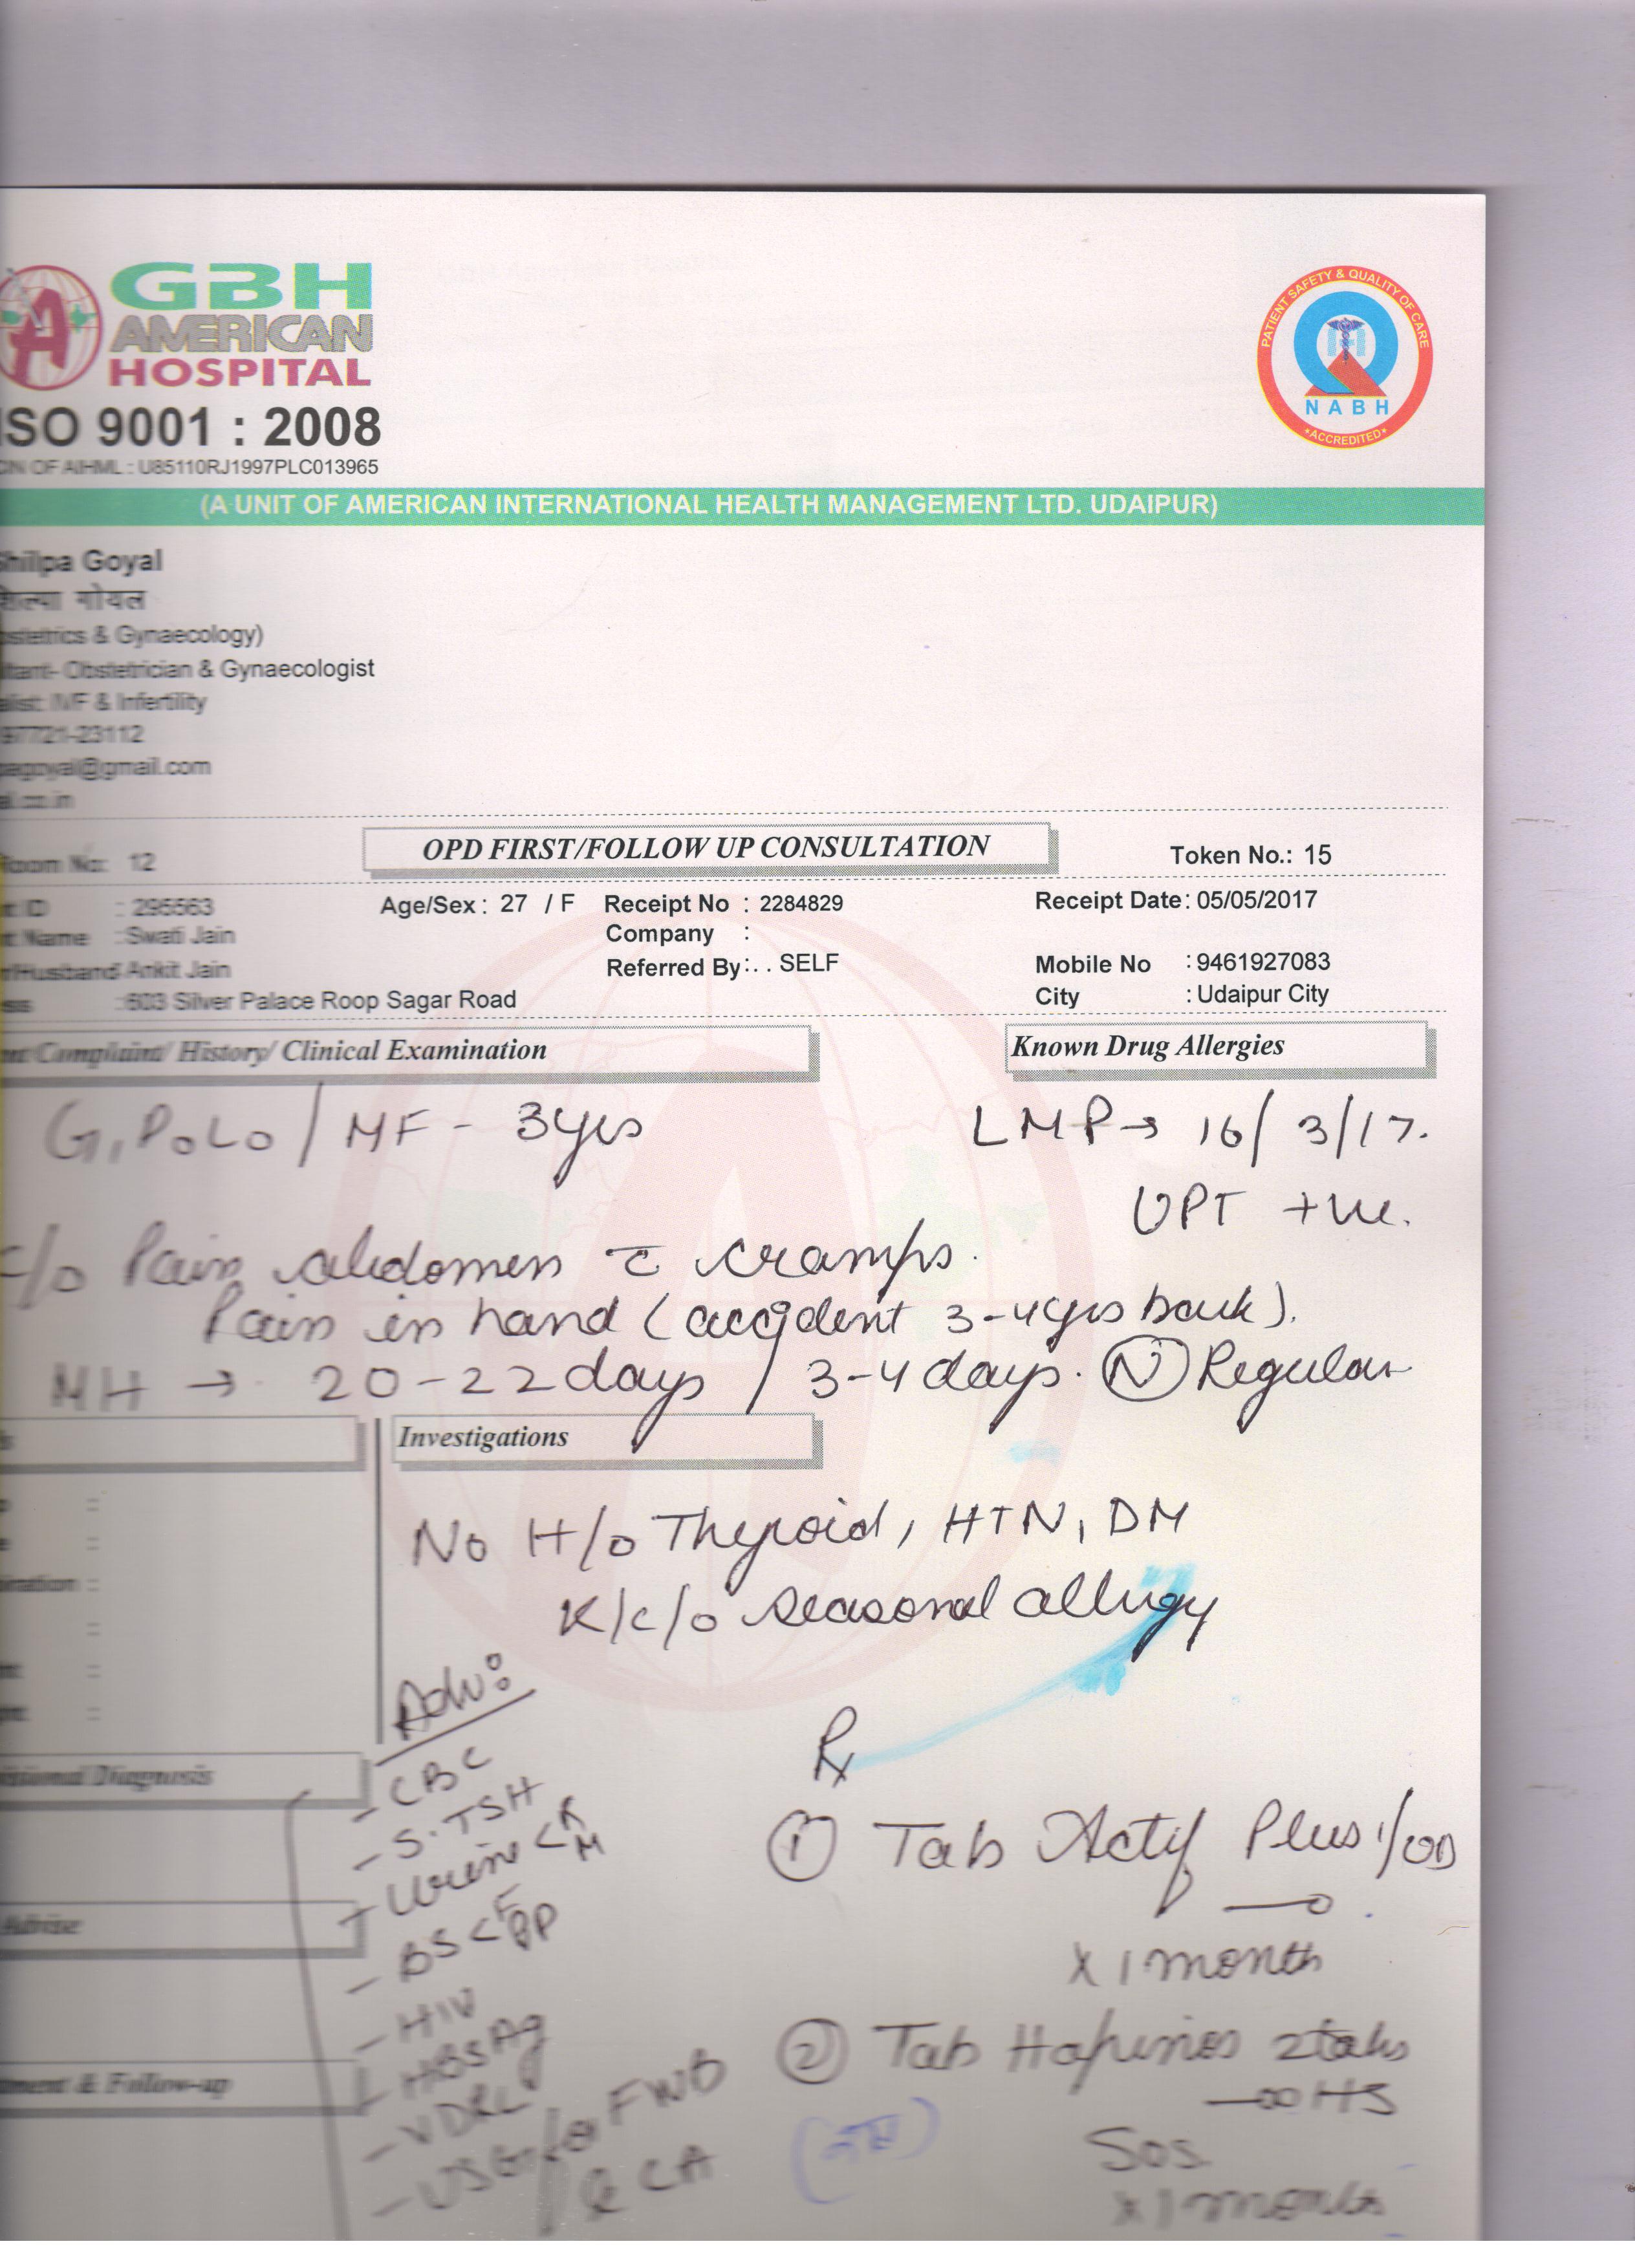 GBH
AMERICAN
HOSPITAL
ISO 9001 : 2008
CIN OF AIHML : U85110RJ1997PLC013965
PATIENT SAFETY & QUALITY OF CARE
NABH
ACCREDITED
(A UNIT OF AMERICAN INTERNATIONAL HEALTH MANAGEMENT LTD. UDAIPUR)
Shilpa Goyal
शिल्पा गोयल
Obstetrics & Gynaecology)
ltant- Obstetrician & Gynaecologist
alist: IVF & Infertility
97721-23112
pagoyal@gmail.com
al.co.in
OPD FIRST/FOLLOW UP CONSULTATION
Room No: 12 Token No.: 15
t ID : 295563 Age/Sex : 27 / F Receipt No : 2284829 Receipt Date : 05/05/2017
t Name : Swati Jain Company :
r/Husband : Ankit Jain Referred By : . . SELF Mobile No : 9461927083
ess : 603 Silver Palace Roop Sagar Road City : Udaipur City
nt Complaint/ History/ Clinical Examination Known Drug Allergies
G1P0L0 / MF - 3yrs LMP → 16/3/17.
UPT +ve.
C/o Pain abdomen c cramps.
Pain in hand (accident 3-4yrs back).
MH → 20-22days / 3-4days. (N) Regular
Investigations
No H/o Thyroid, HTN, DM
K/c/o seasonal allergy
Adv:
- CBC
- S.TSH
- Urine < R
M
- BS < F
PP
- HIV
- HBsAg
- VDRL
- USG for FWB
& CA
sional Diagnosis
Advise
tment & Follow-up
Rx
① Tab Actif Plus 1/OD
x 1 month
② Tab Hapinos 2tabs
HS
SOS
x 1 month